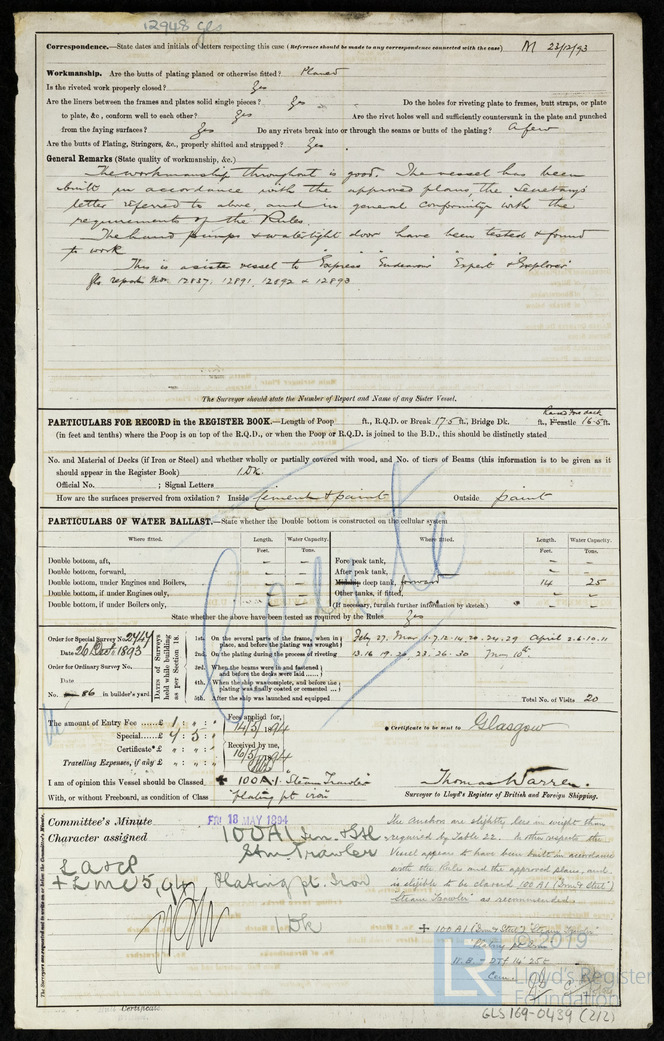 12948 Gls
Correspondence.—State dates and initials of letters respecting this case (Reference should be made to any correspondence connected with the case) M 23/12/93
Workmanship. Are the butts of plating planed or otherwise fitted? Planed
Is the riveted work properly closed? Yes
Are the liners between the frames and plates solid single pieces? Yes Do the holes for riveting plate to frames, butt straps, or plate
to plate, &c., conform well to each other? Yes Are the rivet holes well and sufficiently countersunk in the plate and punched
from the faying surfaces? Yes Do any rivets break into or through the seams or butts of the plating? A few
Are the butts of Plating, Stringers, &c., properly shifted and strapped? Yes
General Remarks (State quality of workmanship, &c.)
The workmanship throughout is good. The vessel has been
built in accordance with the approved plans, the Secretary's
letter referred to above, and in general conformity with the
requirements of the Rules
The hand pumps & watertight door have been tested & found
to work
This is a sister vessel to "Express" "Endeavour" "Expert" & "Explorer"
Gls report Nos. 12837, 12891, 12892 & 12893
The Surveyor should state the Number of Report and Name of any Sister Vessel.
PARTICULARS FOR RECORD in the REGISTER BOOK.—Length of Poop ft., R.Q.D. or Break 17.5 ft., Bridge Dk. ft., F'castle 16.5 ft.
(in feet and tenths) where the Poop is on top of the R.Q.D., or when the Poop or R.Q.D. is joined to the B.D., this should be distinctly stated
No. and Material of Decks (if Iron or Steel) and whether wholly or partially covered with wood, and No. of tiers of Beams (this information is to be given as it
should appear in the Register Book) 1 Dk
Official No. ; Signal Letters
How are the surfaces preserved from oxidation? Inside Cement & paint Outside paint
PARTICULARS OF WATER BALLAST.—State whether the Double bottom is constructed on the cellular system
Where fitted. Length. Water Capacity. Where fitted. Length. Water Capacity.
Feet. Tons. Feet. Tons.
Double bottom, aft, – – Fore peak tank, – –
Double bottom, forward, – – After peak tank, – –
Double bottom, under Engines and Boilers, – – deep tank, forward 14 25
Double bottom, if under Engines only, – – Other tanks, if fitted, – –
Double bottom, if under Boilers only, – – (If necessary, furnish further information by sketch.)
State whether the above have been tested as required by the Rules Yes
Order for Special Survey No. 2444
Date 26 Dec 1893
Order for Ordinary Survey No.
Date
No. 86 in builder's yard.
DATES of Surveys held while building as per Section 18.
1st. On the several parts of the frame, when in place, and before the plating was wrought
2nd. On the plating during the process of riveting
3rd. When the beams were in and fastened and before the decks were laid
4th. When the ship was complete, and before the plating was finally coated or cemented
5th. After the ship was launched and equipped
Feby 27. Mar 1.7.12.14.20.24.29 April 3.6.10.11
13.16.19.20.23.26.30 May 10th
Total No. of Visits 20
The amount of Entry Fee £ 1 : " : "
Special £ 4 : 5 : "
Certificate £ " : " : "
Travelling Expenses, if any £ " : " : "
Fees applied for,
14/5/1894
Received by me,
16/5/1894
Certificate to be sent to Glasgow
I am of opinion this Vessel should be Classed 100A1 "Steam Trawler"
With, or without Freeboard, as condition of Class "plating pt iron"
Thomas Warren.
Surveyor to Lloyd's Register of British and Foreign Shipping.
Committee's Minute FRI 18 MAY 1894
Character assigned 100A1 Irn & Stl
Stm Trawler
LA&CP
+LMC 5,94 Plating pt. Iron
1 Dk
The Anchors are slightly less in weight than
required by Table 22. In other respects the
Vessel appears to have been built in accordance
with the Rules and the approved plans, and
is eligible to be classed 100 A1 (Iron & Steel)
"Steam Trawler" as recommended.
100 A1 (Iron & Steel) "Steam Trawler"
Plating pt Iron
W.B. - DTf 14' 25t
The Surveyors are requested not to write on or below the Committee's Minute.
Certificate
© 2019
LR
Lloyd's Register
Foundation
GLS169-0439 (2/2)